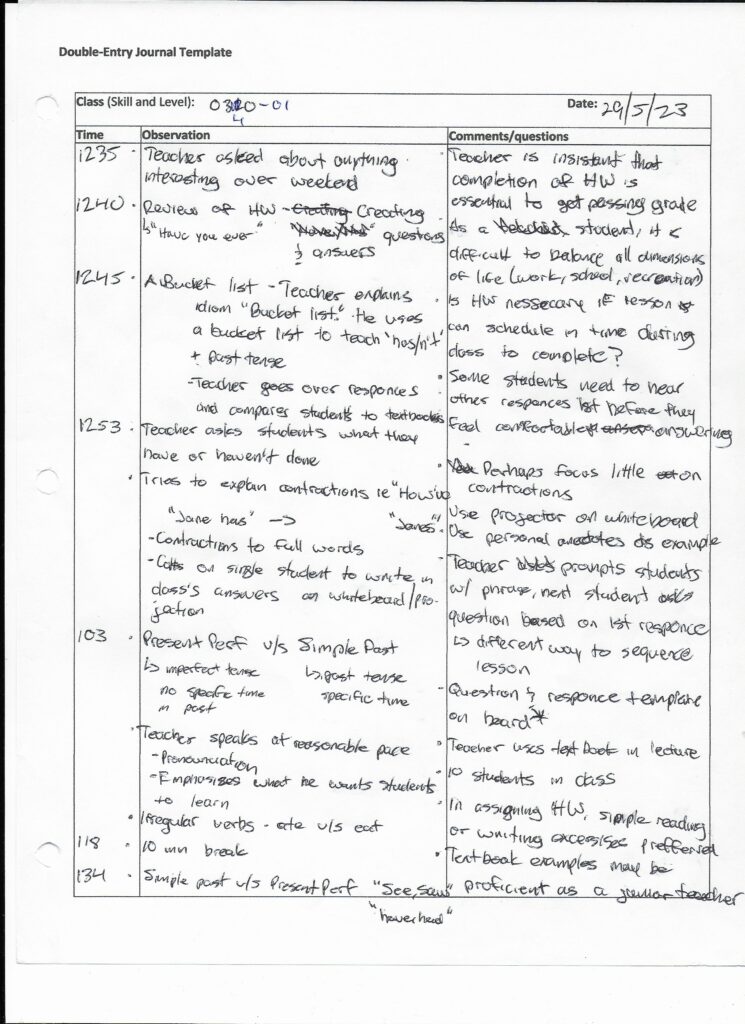 Double-Entry Journal Template
Class (Skill and Level): 0320-01
4
Date: 29/5/23
Time
Observation
Comments/questions
1235 · Teacher asked about anything
interesting over weekend
1240 · Review of HW - Creating Creating
↳ "Have you ever" questions
& answers
1245 · A Bucket list - Teacher explains
idiom "Bucket list." He uses
a bucket list to teach 'has/n't'
+ past tense
- Teacher goes over responces
and compares students to textbooks
1253 · Teacher asks students what they
have or haven't done
· Tries to explain contractions ie "How've
"Jane has" -> "Janes"
- Contractions to full words
- Calls on single student to write in
class's answers on whiteboard/pro-
jection
103 · Present Perf v/s Simple Past
↳ imperfect tense ↳ past tense
no specific time specific time
in past
· Teacher speaks at reasonable pace
- Pronounciation
- Emphasizes what he wants students
to learn
· Irregular verbs - ate v/s eat
118 · 10 min break
134 · Simple past v/s Present Perf "See, saw"
"have had"
· Teacher is insistant that
completion of HW is
essential to get passing grade
· As a student, it is
difficult to balance all dimensions
of life (work, school, recreation)
· Is HW nessecary if lesson
can schedule in time during
class to complete?
· Some students need to hear
other responces 1st before they
feel comfortable answering
· Perhaps focus little on
contractions
· Use projector on whiteboard
· Use personal anecdotes as example
· Teacher asks prompts students
w/ phrase, next student asks
question based on 1st responce
↳ different way to sequence
lesson
· Question & responce template
on board*
· Teacher uses text book in lecture
· 10 students in class
· In assigning HW, simple reading
or writing excersises prefferred
· Textbook examples may be
proficient as a junior teacher